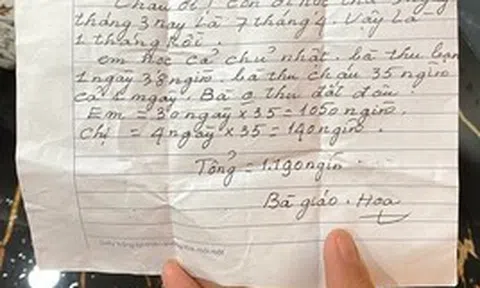 Cháu ơi! con đi học
tháng 3 nay là 7 tháng 4. Vậy là
1 tháng rồi.
em học cả chủ nhật. bà thu bạn
1 ngày 38 ngìn. bà thu cháu 35 ngìn
cả ngày. Bà o thu đắt đâu.
Em = 30 ngày x 35 = 1050 ngìn.
Chị = 4 ngày x 35 = 140 ngìn.
Tổng = 1.190 ngìn.
Bà giáo. Hoa